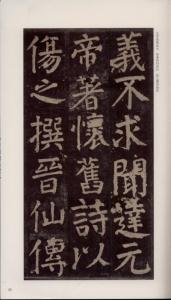 義不求聞達元
帝著懷舊詩以
傷之撰晉仙傳